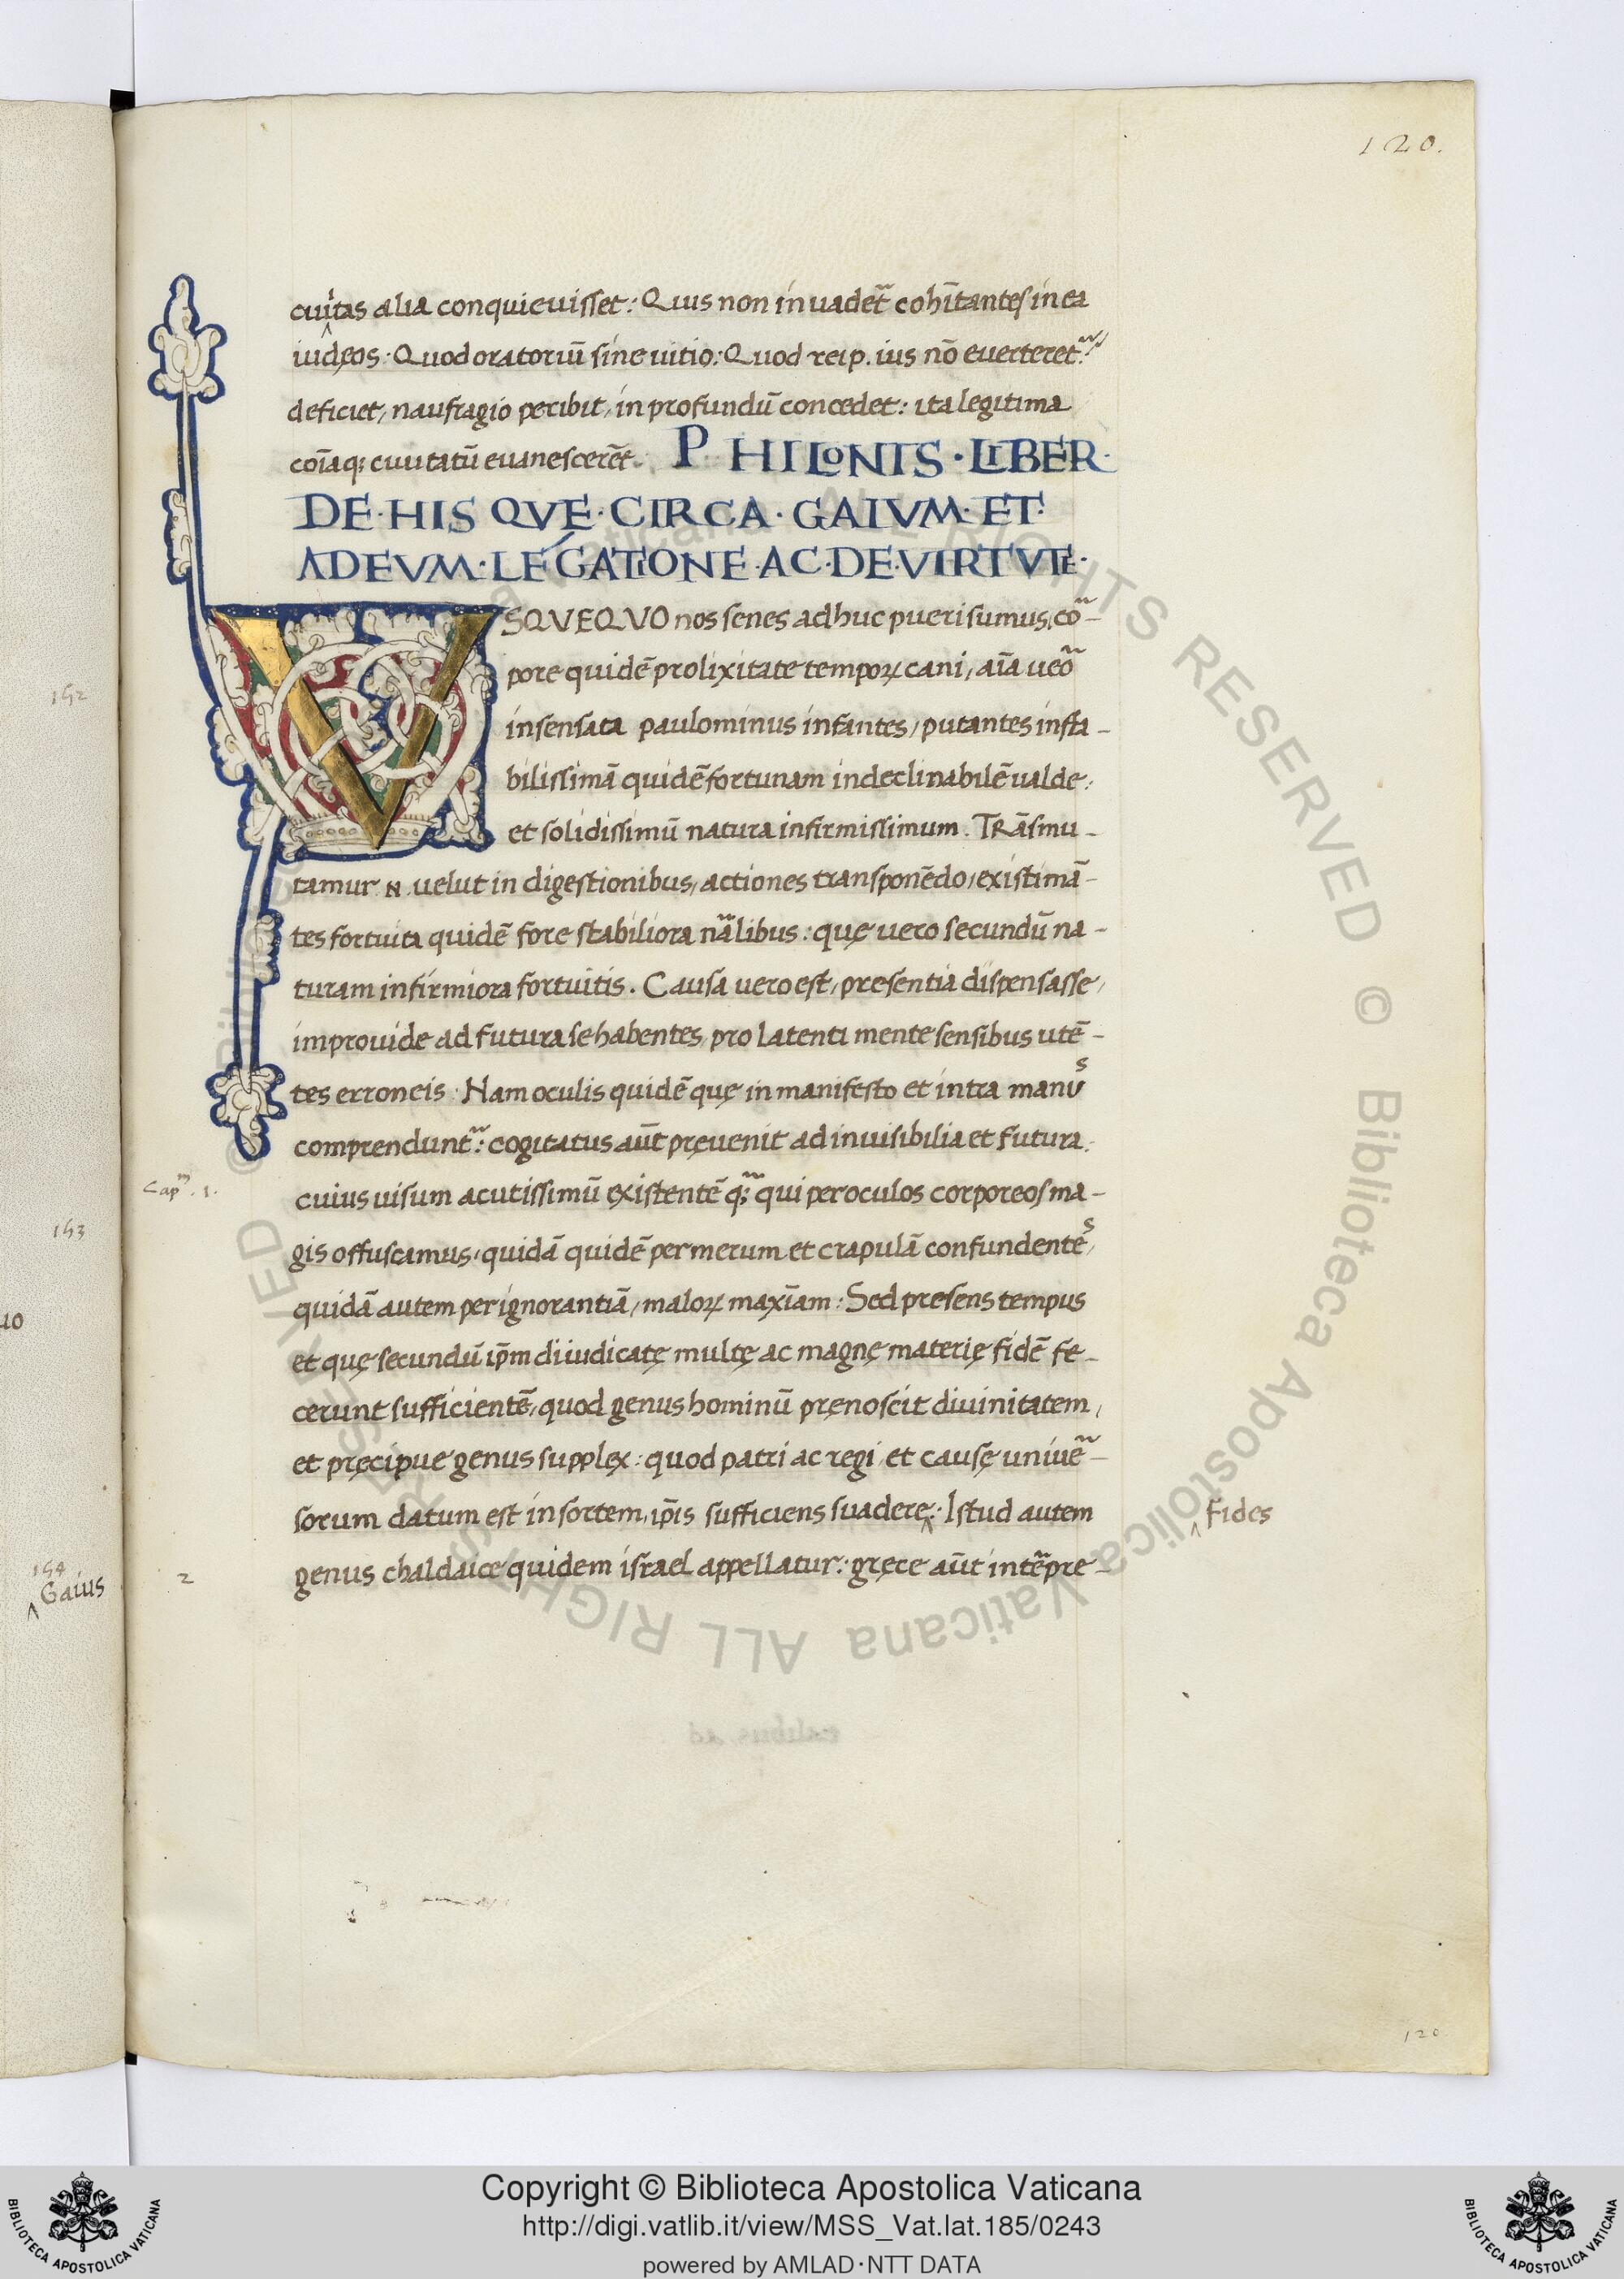 120.
cuitas alia conquieuisset: Quis non inuadet᷑ cohītantes in ea
iudęos. Quod oratoriū sine uitio: Quod reip. ius nō euerteret᷑
deficiet, naufragio peribit, in profundū concedet: ita legitima
coīaq; ciuitatū euanescerēt. PHILONIS · LIBER ·
DE · HIS QVE · CIRCA · GAIVM · ET ·
ADEVM · LEGATIONE · AC · DE · VIRTVTE ·
VSQVEQVO nos senes adhuc pueri sumus, co᷑-
pore quidē prolixitate tempoꝝ cani, aīa ueo᷑
insensata paulominus infantes, putantes insta-
bilissimā quidē fortunam indeclinabilē ualde:
et solidissimū natura infirmissimum. Trāsmu-
tamur .n. uelut in digestionibus, actiones transponēdo, existimā-
tes fortuita quidē fore stabiliora nālibus: quę uero secundū na-
turam infirmiora fortuitis. Causa uero est, presentia dispensasse,
improuide ad futura se habentes, pro latenti mente sensibus utē-
tes erroneis. Nam oculis quidē quę in manifesto et intra manus
comprendunt᷑: cogitatus aūt pręuenit ad inuisibilia et futura.
Capm. 1.
cuius uisum acutissimū existentē q;᷑ qui per oculos corporeos ma-
gis offuscamus, quidā quidē per merum et crapulā confundentes,
quidā autem per ignorantiā, maloꝝ maxīam: Sed presens tempus
et quę secundū ip̄m diiudicatę multę ac magnę materię fidē fe-
cerunt sufficientē, quod genus hominū pręnoscit diuinitatem,
et pręcipue genus supplex: quod patri ac regi et causę uniue᷑-
sorum datum est in sortem, ip̄is sufficiens suadere. Istud autem
fides
2
genus chaldaice quidem israel appellatur: gręce aūt inte᷑pre-
152
153
10
154
Gaius
120
Copyright © Biblioteca Apostolica Vaticana
http://digi.vatlib.it/view/MSS_Vat.lat.185/0243
powered by AMLAD·NTT DATA
BIBLIOTECA APOSTOLICA VATICANA
BIBLIOTECA APOSTOLICA VATICANA